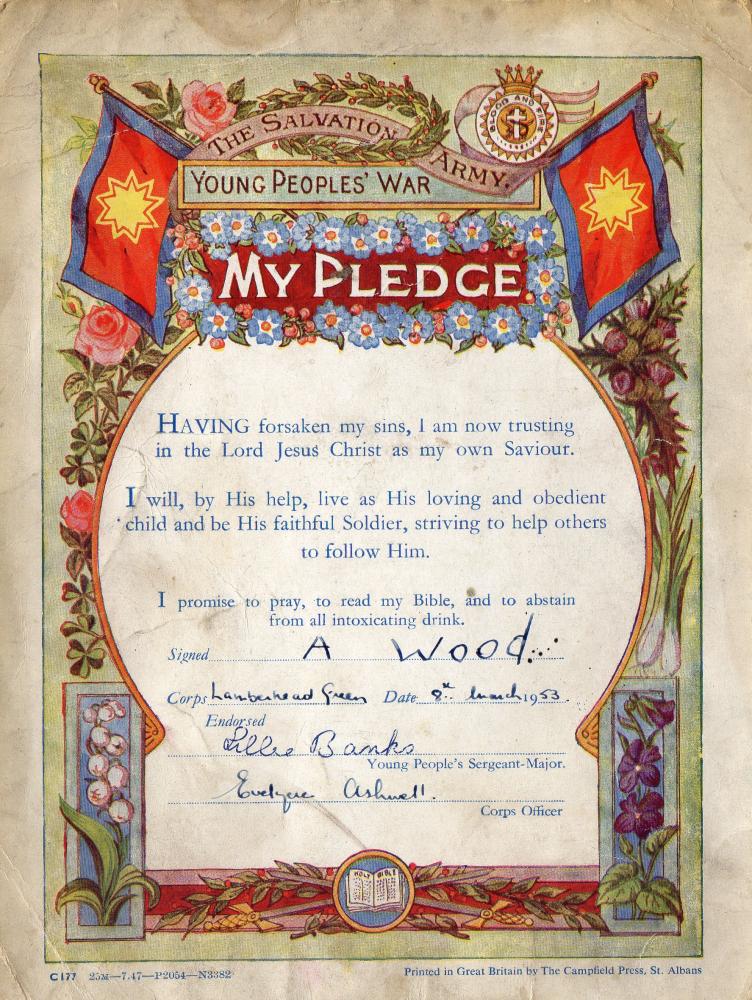 THE SALVATION ARMY.
BLOOD AND FIRE
YOUNG PEOPLES' WAR
MY PLEDGE
HAVING forsaken my sins, I am now trusting
in the Lord Jesus Christ as my own Saviour.
I will, by His help, live as His loving and obedient
child and be His faithful Soldier, striving to help others
to follow Him.
I promise to pray, to read my Bible, and to abstain
from all intoxicating drink.
Signed A Wood
Corps Lamberhead Green Date 8th March 1953.
Endorsed
Lillie Banks
Young People's Sergeant-Major.
Evelyne Ashwell.
Corps Officer
HOLY BIBLE
C177 25M—7.47—P2054—N3382
Printed in Great Britain by The Campfield Press, St. Albans